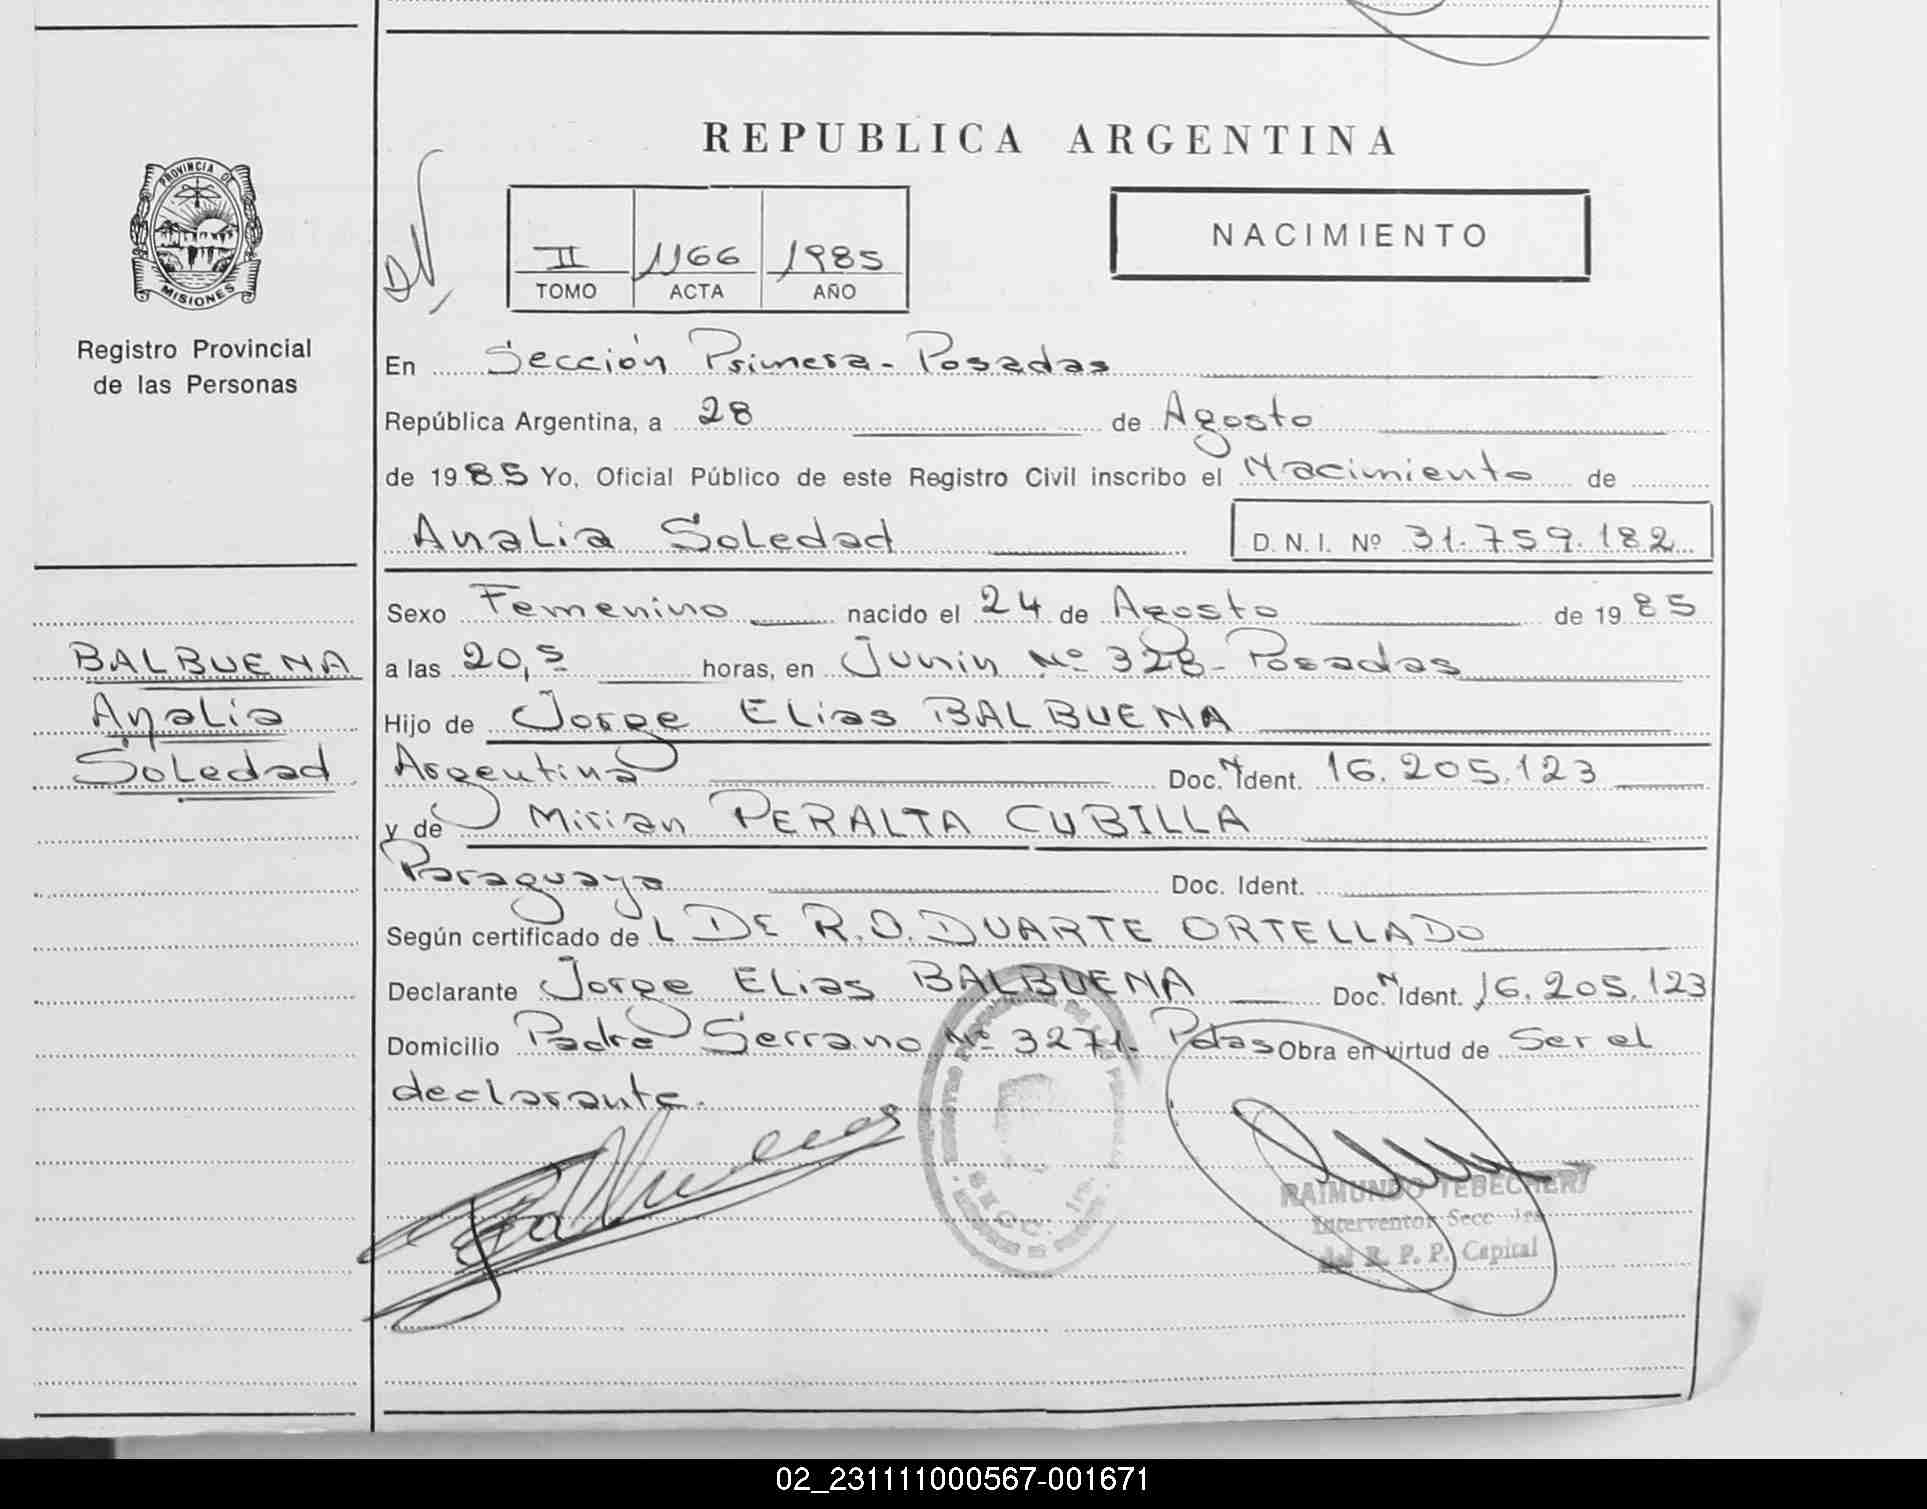 REPUBLICA ARGENTINA
PROVINCIA DE
MISIONES
Registro Provincial
de las Personas
II 1166 1985
TOMO ACTA AÑO
NACIMIENTO
En Sección Primera - Posadas
República Argentina, a 28 de Agosto
de 1985 Yo, Oficial Público de este Registro Civil inscribo el Nacimiento de
Analia Soledad D. N. I. Nº 31.759.182
Sexo Femenino nacido el 24 de Agosto de 1985
BALBUENA
Analia
Soledad
a las 20,5 horas, en Junin Nº 328 - Posadas
Hijo de Jorge Elias BALBUENA
Argentina Doc. N Ident. 16.205.123
y de Mirian PERALTA CUBILLA
Paraguaya Doc. Ident.
Según certificado de L DE R.O. DUARTE ORTELLADO
Declarante Jorge Elias BALBUENA Doc. N Ident. 16.205.123
Domicilio Padre Serrano Nº 3271 - Pdas Obra en virtud de Ser el
declarante.
SECC. 1ra.
RAIMUNDO TEBECHERI
Interventor Secc 1ra
del R. P. P. Capital
02_231111000567-001671